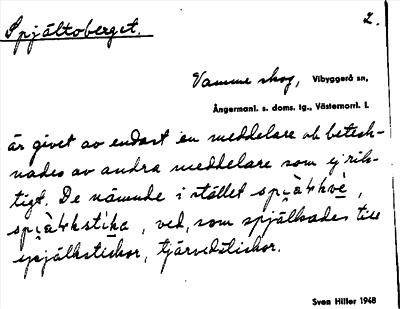 Spjältoberget. 2.
Vamme skog, Vibyggerå sn,
Ångermanl. s. doms. tg., Västernorrl. l.
är givet av endast en meddelare och beteck-
nades av andra meddelare som ej rik-
tigt. De nämnde i stället
, ved, som spjälkades till
spjälkstickor, tjärvedstickor.
Sven Hiller 1948